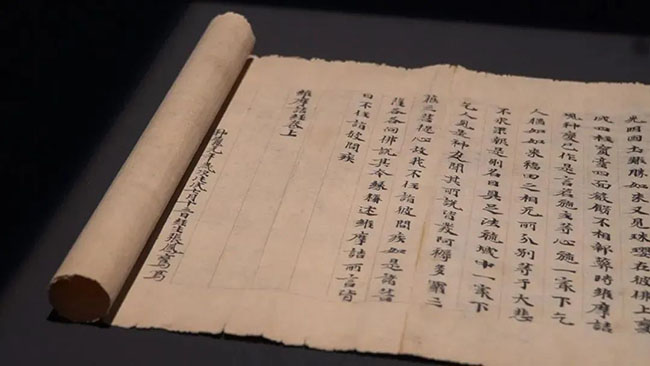 光明國土難勝如來又見珠瓔在彼佛上變
成四柱寶臺四面嚴飾不相鄣蔽時維摩詰
現神變已作是言若施主等心施一最下乞
人猶如如來福田之相无所分別等于大悲
不求果報是則名曰具足法施城中一最下
乞人見是神力聞其所說皆發阿耨多羅三
藐三菩提心故我不任詣彼問疾如是諸菩
薩各各向佛說其本緣稱述維摩詰所言皆
曰不任詣彼問疾
維摩詰經卷上
神龜元年歲次戊戌七月十三日經生張鳳鸞寫